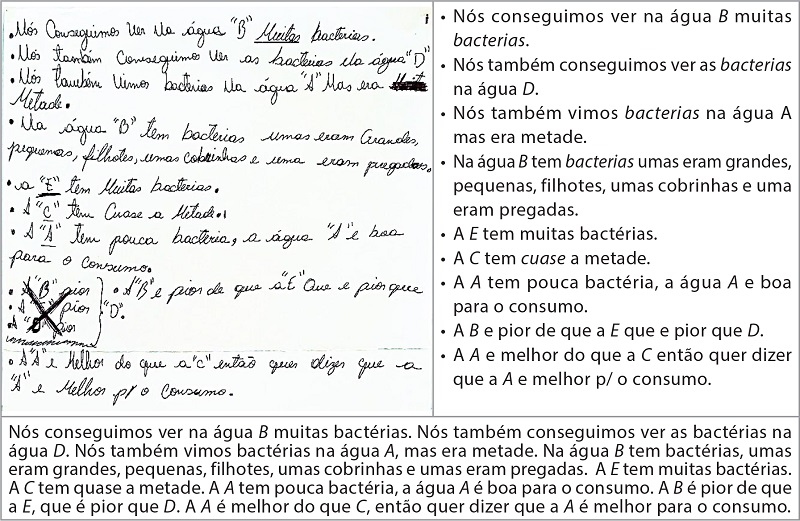 • Nós Conseguimos Ver Na água "B" Muitas bacterias.
• Nós também Conseguimos Ver as bacterias Na água "D"
• Nós também Vimos bacterias Na água "A" Mas era
Metade.
• Na água "B" tem bacterias umas eram Grandes,
pequenas, filhotes, umas cobrinhas e uma eram pregadas.
• a "E" tem Muitas bacterias.
• A "C" tem Cuase a Metade.
• A "A" tem pouca bactéria, a água "A" e boa
para o consumo.
• A "B" pior
• A "E" pior
• A pior
• A "B" e pior de que a "E" Que e pior que
"D".
• A "A" e Melhor do que a "C" então quer dizer que a
"A" e Melhor p/ o Consumo.
• Nós conseguimos ver na água B muitas
bacterias.
• Nós também conseguimos ver as bacterias
na água D.
• Nós também vimos bacterias na água A
mas era metade.
• Na água B tem bacterias umas eram grandes,
pequenas, filhotes, umas cobrinhas e uma
eram pregadas.
• A E tem muitas bactérias.
• A C tem cuase a metade.
• A A tem pouca bactéria, a água A e boa
para o consumo.
• A B e pior de que a E que e pior que D.
• A A e melhor do que a C então quer dizer
que a A e melhor p/ o consumo.
Nós conseguimos ver na água B muitas bactérias. Nós também conseguimos ver as bactérias na
água D. Nós também vimos bactérias na água A, mas era metade. Na água B tem bactérias, umas
eram grandes, pequenas, filhotes, umas cobrinhas e umas eram pregadas. A E tem muitas bactérias.
A C tem quase a metade. A A tem pouca bactéria, a água A é boa para o consumo. A B é pior de que
a E, que é pior que D. A A é melhor do que C, então quer dizer que a A é melhor para o consumo.